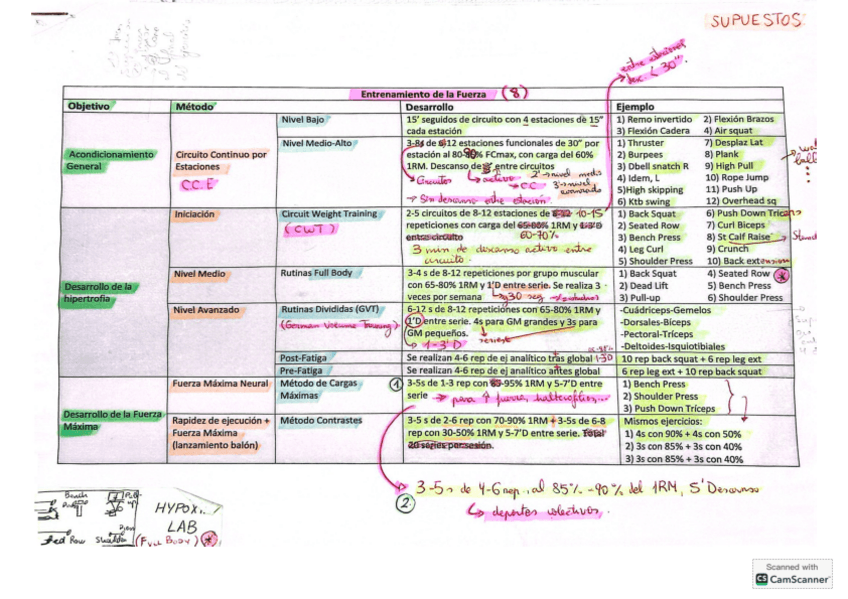 SUPUESTOS
entre estaciones
desc < 30''
Entrenamiento de la Fuerza (8)
Objetivo Método Desarrollo Ejemplo
Acondicionamiento General
Circuito Continuo por Estaciones
C.C.E
Nivel Bajo
15' seguidos de circuito con 4 estaciones de 15''
cada estación
1) Remo invertido 2) Flexión Brazos
3) Flexión Cadera 4) Air squat
Nivel Medio-Alto
estaciones funcionales de 30'' por
estación al 80-90% FCmax, con carga del 60%
1RM. Descanso de entre circuitos
Circuitos activo 2' → nivel medio
C.C 3' → nivel avanzado
→ Sin descanso entre estación
1) Thruster 7) Desplaz Lat
2) Burpees 8) Plank
3) Dbell snatch R 9) High Pull
4) Idem, L 10) Rope Jump
5)High skipping 11) Push Up
6) Ktb swing 12) Overhead sq
Desarrollo de la hipertrofia
Iniciación
Circuit Weight Training
(CWT)
2-5 circuitos de 8-12 estaciones de 8-12 10-15
repeticiones con carga del 65-80% 1RM y 1-3'D
entre circuito 60-70%
3 min de descanso activo entre
circuito.
1) Back Squat 6) Push Down Triceps
2) Seated Row 7) Curl Biceps
3) Bench Press 8) St Calf Raise
4) Leg Curl 9) Crunch
5) Shoulder Press 10) Back extension
Nivel Medio
Rutinas Full Body
3-4 s de 8-12 repeticiones por grupo muscular
con 65-80% 1RM y 1'D entre serie. Se realiza 3
veces por semana 30 seg
1) Back Squat 4) Seated Row
2) Dead Lift 5) Bench Press
3) Pull-up 6) Shoulder Press
Nivel Avanzado
Rutinas Divididas (GVT)
(German Volume Training)
6-12 s de 8-12 repeticiones con 65-80% 1RM y
1'D entre serie. 4s para GM grandes y 3s para
GM pequeños.
1-3'D series
-Cuádriceps-Gemelos
-Dorsales-Biceps
-Pectoral-Tríceps
-Deltoides-Isquiotibiales
Post-Fatiga
Se realizan 4-6 rep de ej analítico tras global
10 rep back squat + 6 rep leg ext
Pre-Fatiga
Se realizan 4-6 rep de ej analítico antes global
6 rep leg ext + 10 rep back squat
Desarrollo de la Fuerza Máxima
Fuerza Máxima Neural
Método de Cargas Máximas
1
3-5s de 1-3 rep con 85-95% 1RM y 5-7'D entre
serie → para ↑ fuerza, halterofilia...
1) Bench Press
2) Shoulder Press
3) Push Down Tríceps
Rapidez de ejecución +
Fuerza Máxima
(lanzamiento balón)
Método Contrastes
3-5 s de 2-6 rep con 70-90% 1RM + 3-5s de 6-8
rep con 30-50% 1RM y 5-7'D entre serie. Total
20 series por sesión.
Mismos ejercicios:
1) 4s con 90% + 4s con 50%
2) 3s con 85% + 3s con 40%
3) 3s con 85% + 3s con 40%
2 3-5 s de 4-6 rep, al 85%-90% del 1RM, 5' Descanso
↳ deportes colectivos.
HYPOX...
LAB
(Full Body)
Scanned with
CS CamScanner